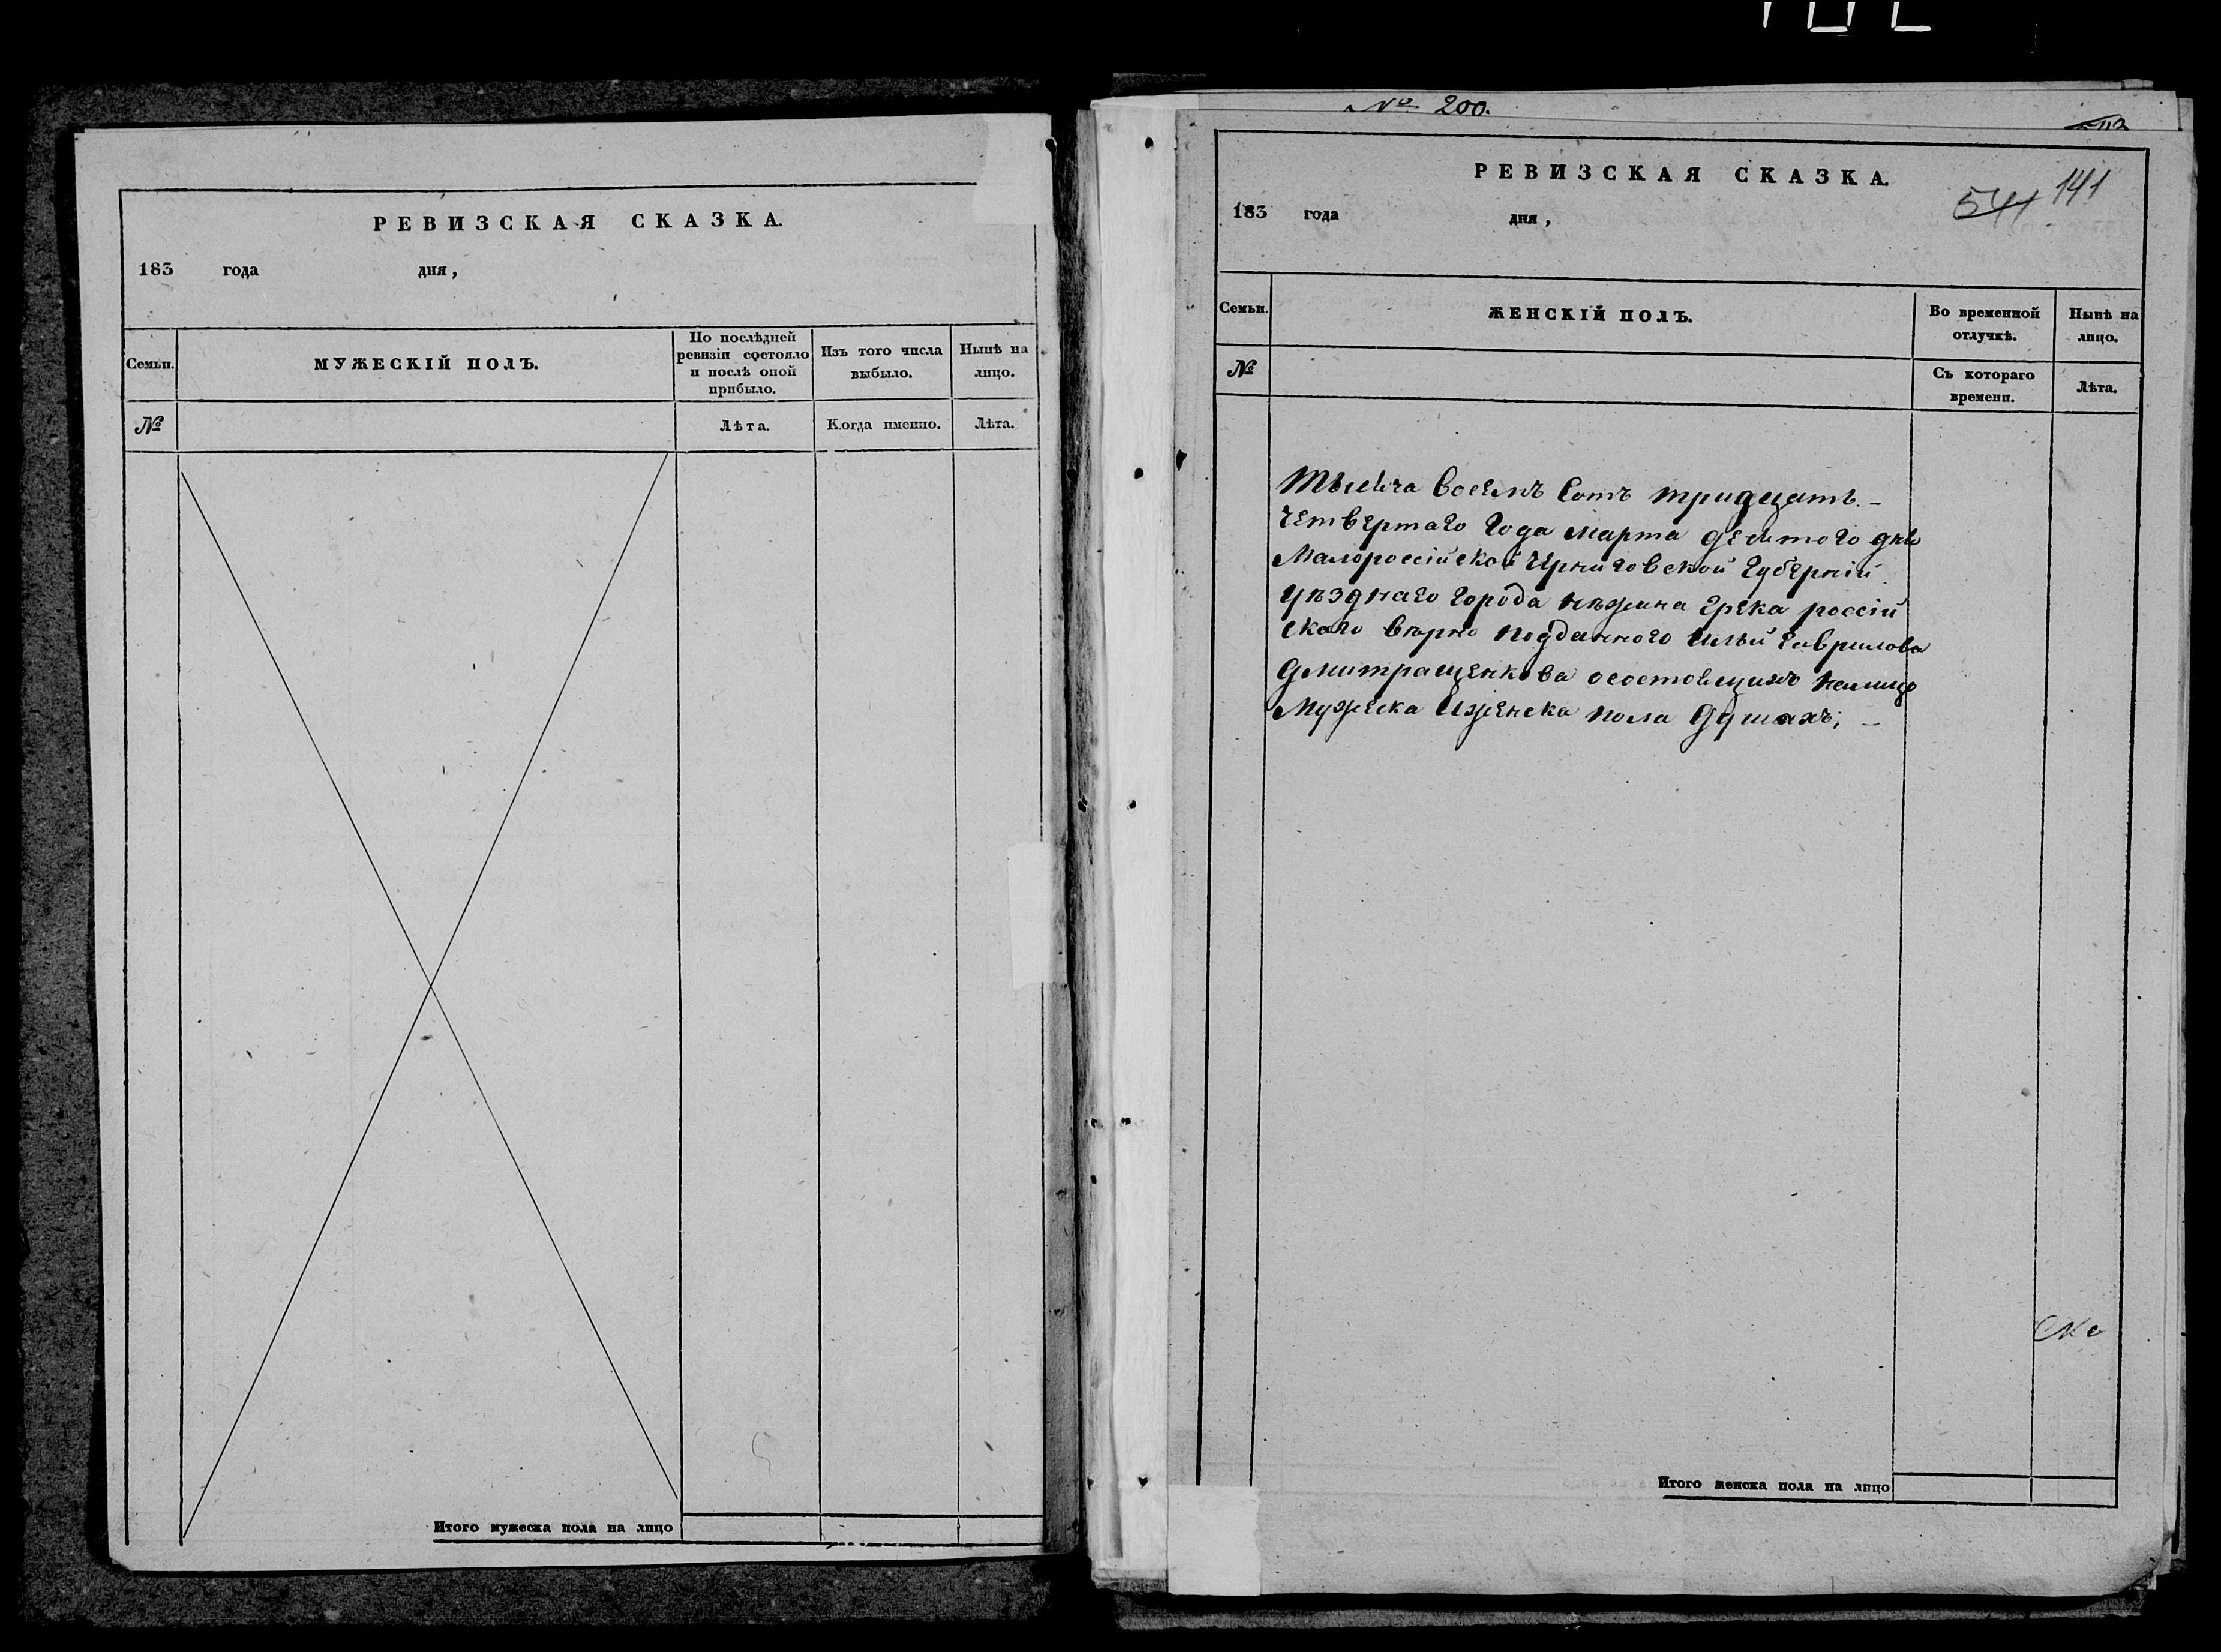 РЕВИЗСКАЯ СКАЗКА.
183 года дня,
Семьи.
МУЖЕСКІЙ ПОЛЪ.
По послѣдней
ревизіи состояло
и послѣ оной
прибыло.
Изъ того числа
выбыло.
Нынѣ на
лицо.
№
Лѣта.
Когда именно.
Лѣта.
Итого мужеска пола на лицо
№ 200.
РЕВИЗСКАЯ СКАЗКА.
541 141
183 года дня,
Семьи.
ЖЕНСКІЙ ПОЛЪ.
Во временной
отлучкѣ.
Нынѣ на
лицо.
№
Съ котораго
времени.
Лѣта.
Тысяча восемъ сотъ тридцать -
четвертаго года марта десятого дня
Малороссійской Черниговской губерніи
уѣзднаго города нѣжина грека россій
скаго вѣрно подданного Ильи Гаврилова
Дмитращенкова осостоящихъ налицо
мужеска Иженска пола душахъ; -
Ска
Итого женска пола на лицо